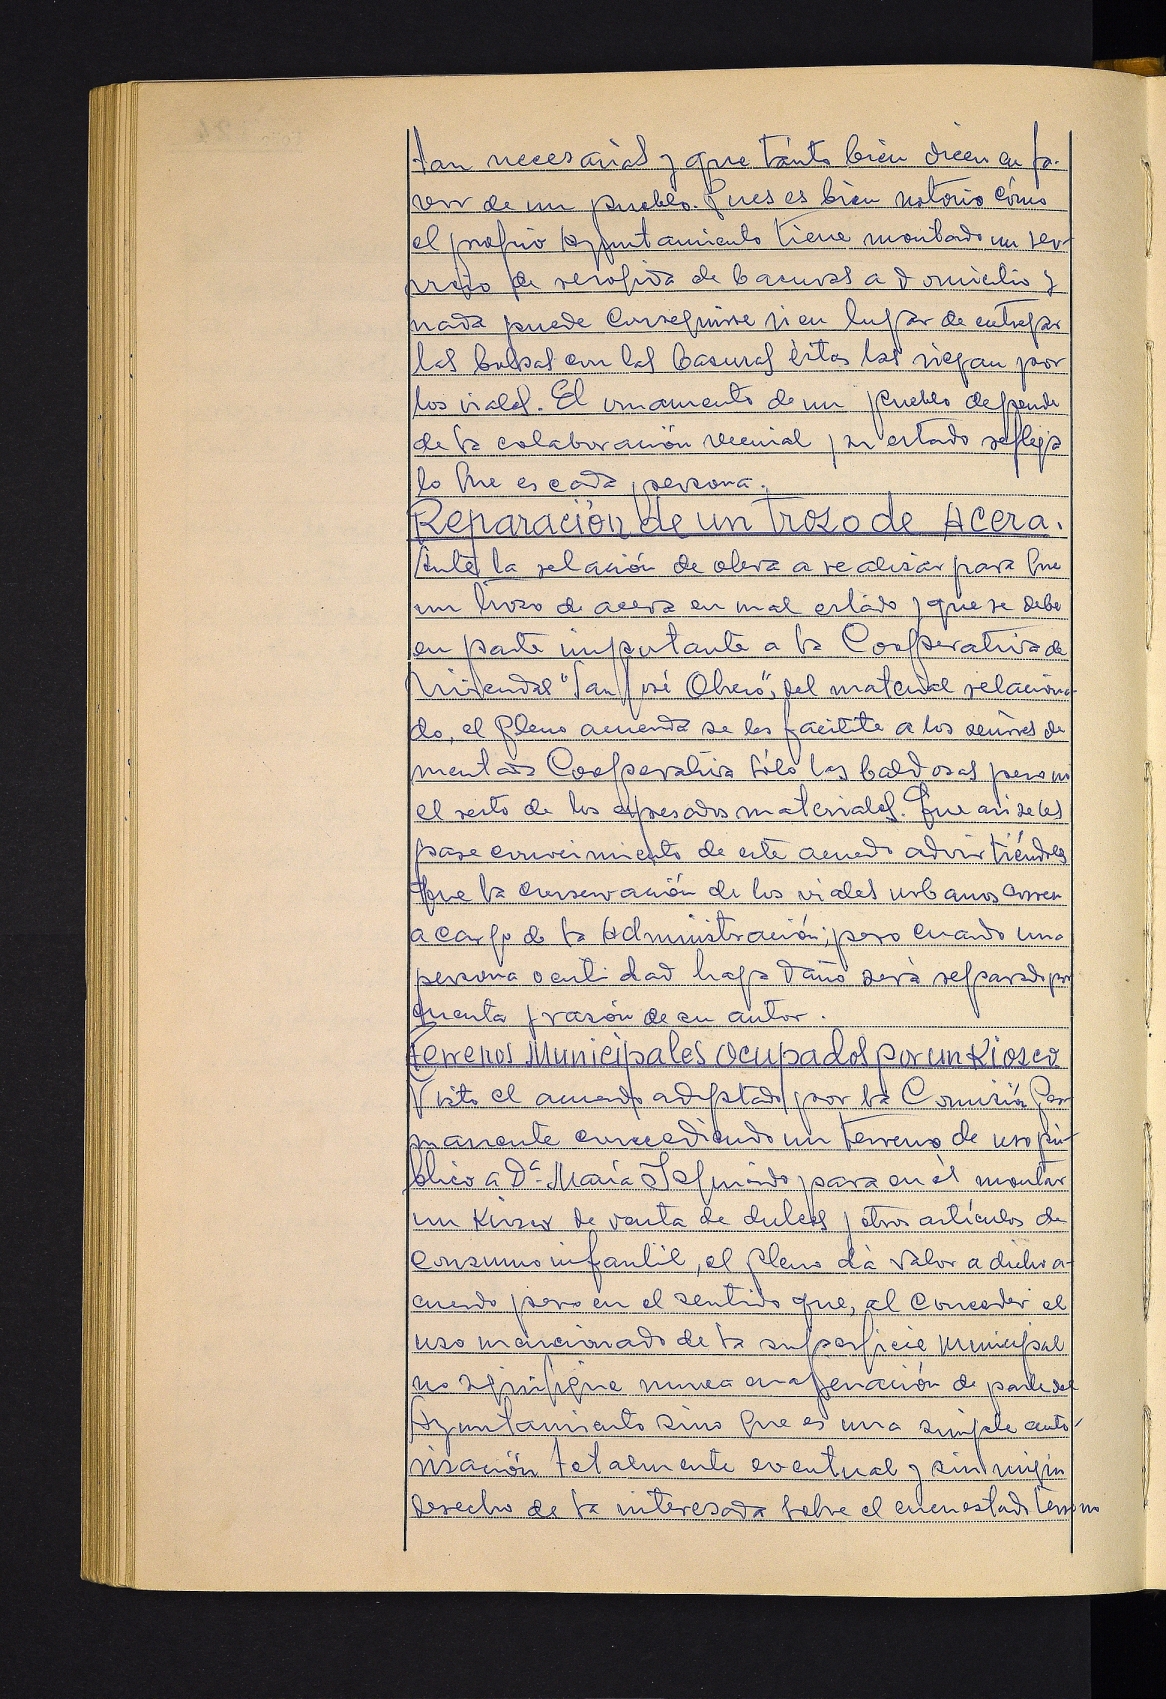 tan necesarias y que tanto bien dicen en fa-
vor de un pueblo. Pues es bien notorio cómo
el propio Ayuntamiento tiene montado un ser-
vicio de recogida de basuras a domicilio y
nada puede conseguirse si en lugar de entregar
las bolsas con las basuras éstas las riegan por
los viales. El ornamento de un pueblo depende
de la colaboración vecinal y su estado refleja
lo que es cada persona.
Reparación de un trozo de Acera.
Ante la relación de obra a realizar para que
un trozo de acera en mal estado y que se debe
en parte importante a la Cooperativa de
Viviendas "San José Obrero", del material relaciona-
do, el Pleno acuerda se les facilite a los señores de
mentada Cooperativa sólo las baldosas pero no
el resto de los expresados materiales. Que así se les
pase conocimiento de este acuerdo advirtiéndoles
que la conservación de los viales urbanos corren
a cargo de la Administración; pero cuando una
persona o entidad haga daño será reparado por
cuenta y razón de su autor.
Terrenos Municipales ocupados por un Kiosco
Visto el acuerdo adoptado por la Comisión Per-
manente concediendo un terreno de uso pú-
blico a Dª. María Izquierdo para en él montar
un Kiosco de venta de dulces y otros artículos de
consumo infantil, el Pleno dá valor a dicho a-
cuerdo pero en el sentido que, al conceder el
uso mencionado de la superficie municipal
no signifique nunca enajenación de parte del
Ayuntamiento sino que es una simple auto-
rización totalmente eventual y sin ningún
derecho de la interesada sobre el encuestado terreno